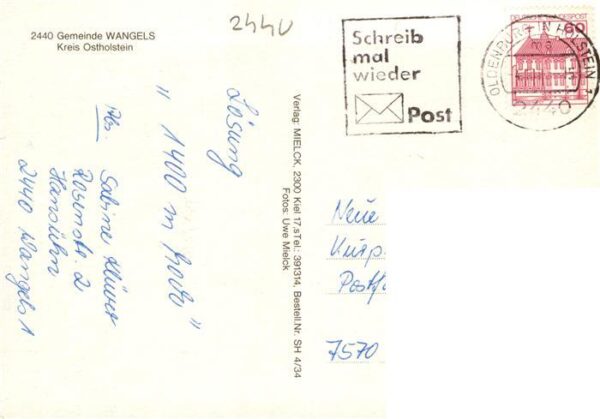 2440 Gemeinde WANGELS
Kreis Ostholstein
2440
Schreib
mal
wieder
Post
60
OLDENBURG IN HOLSTEIN 1
2440
Lösung
" 1400 m "
Abs. Sabine
Rosenstr. 2
Hansühn
2440 Wangels 1
Verlag: MIELCK, 2300 Kiel 17,sTel.: 391314, Bestell.Nr. SH 4/34
Fotos: Uwe Mielck
Neue
Kurp.
Postf
7570